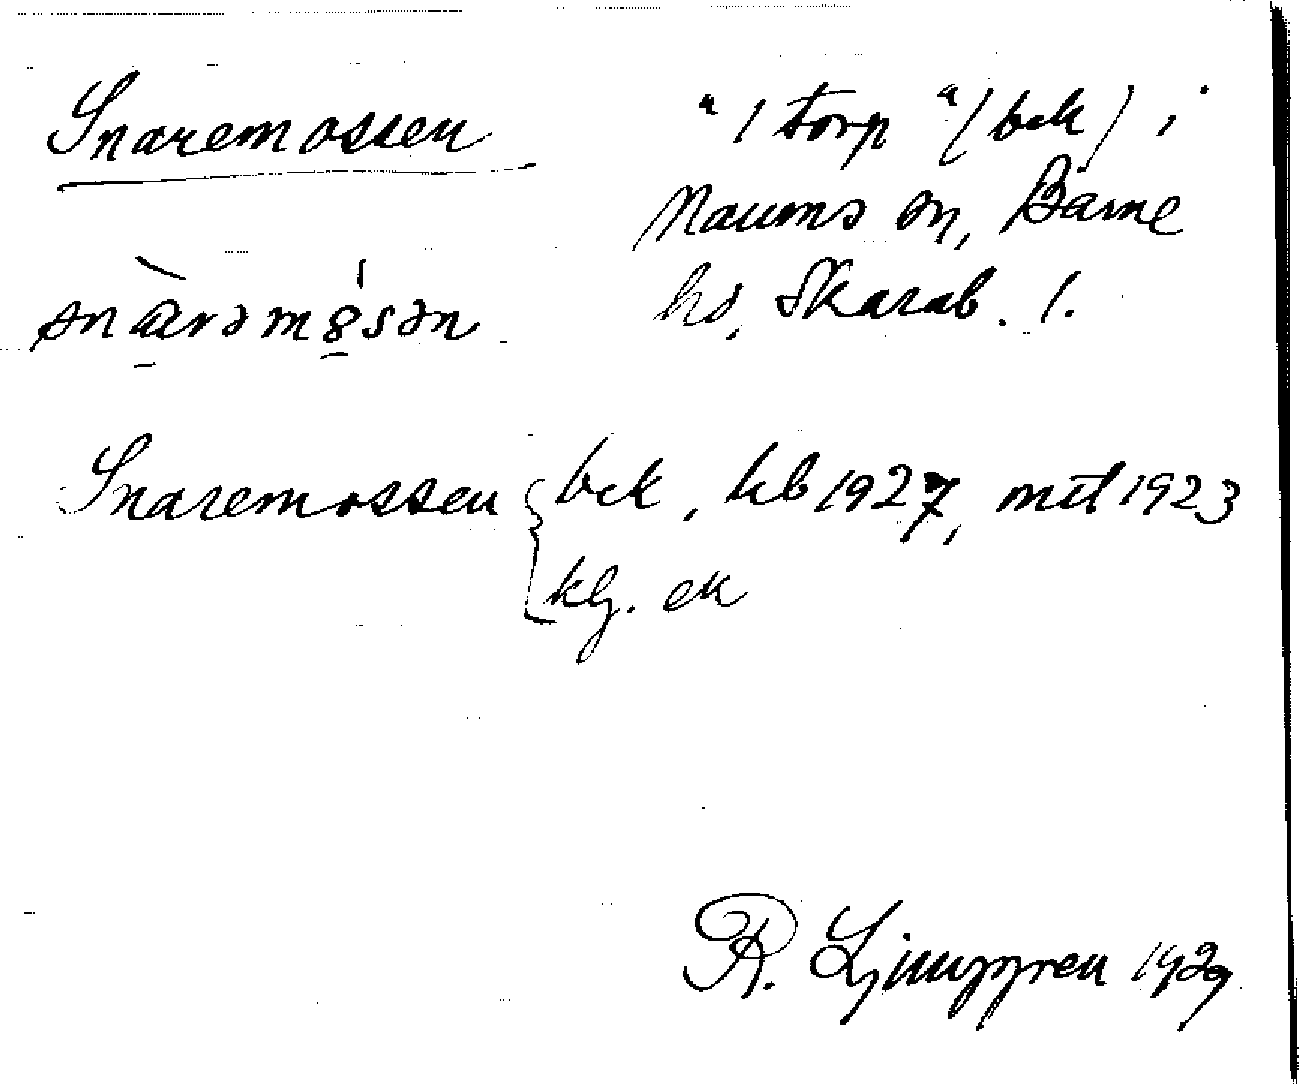 Snaremossen
"1 torp" (bck) i
Naums sn, Barne
hd, Skarab. l.
snàrəmósən
Snaremossen { bck, kb 1927, mtl 1923
klg. ek
R. Ljunggren 1929